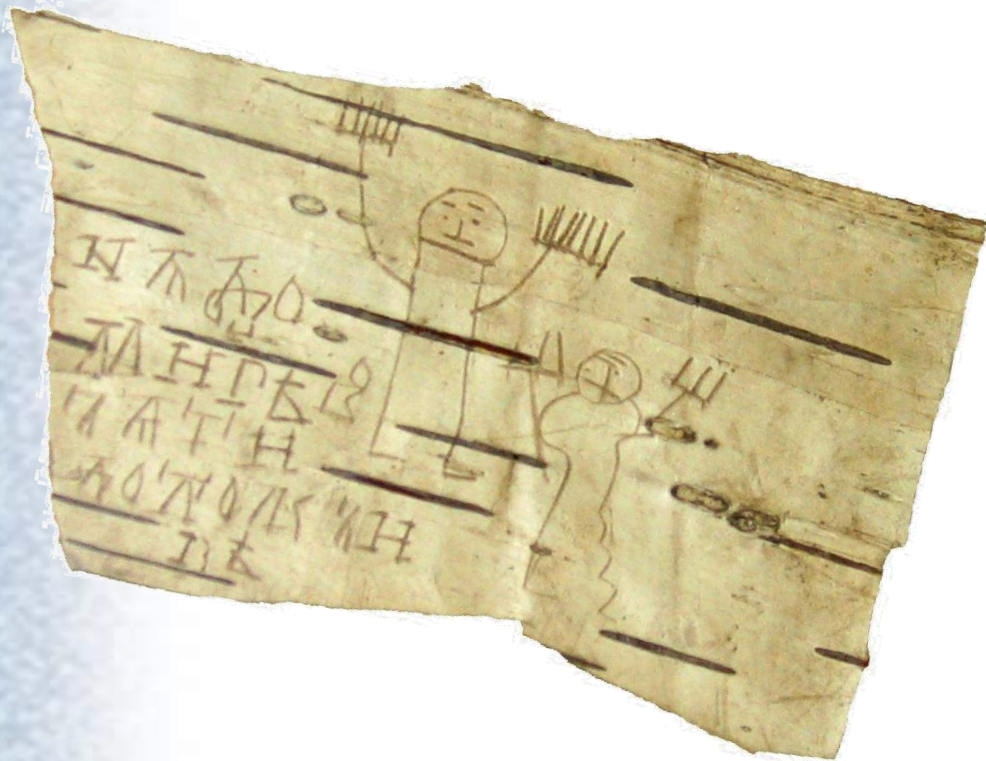 надо
митрѣ во
зѧти
доложи
кѣ